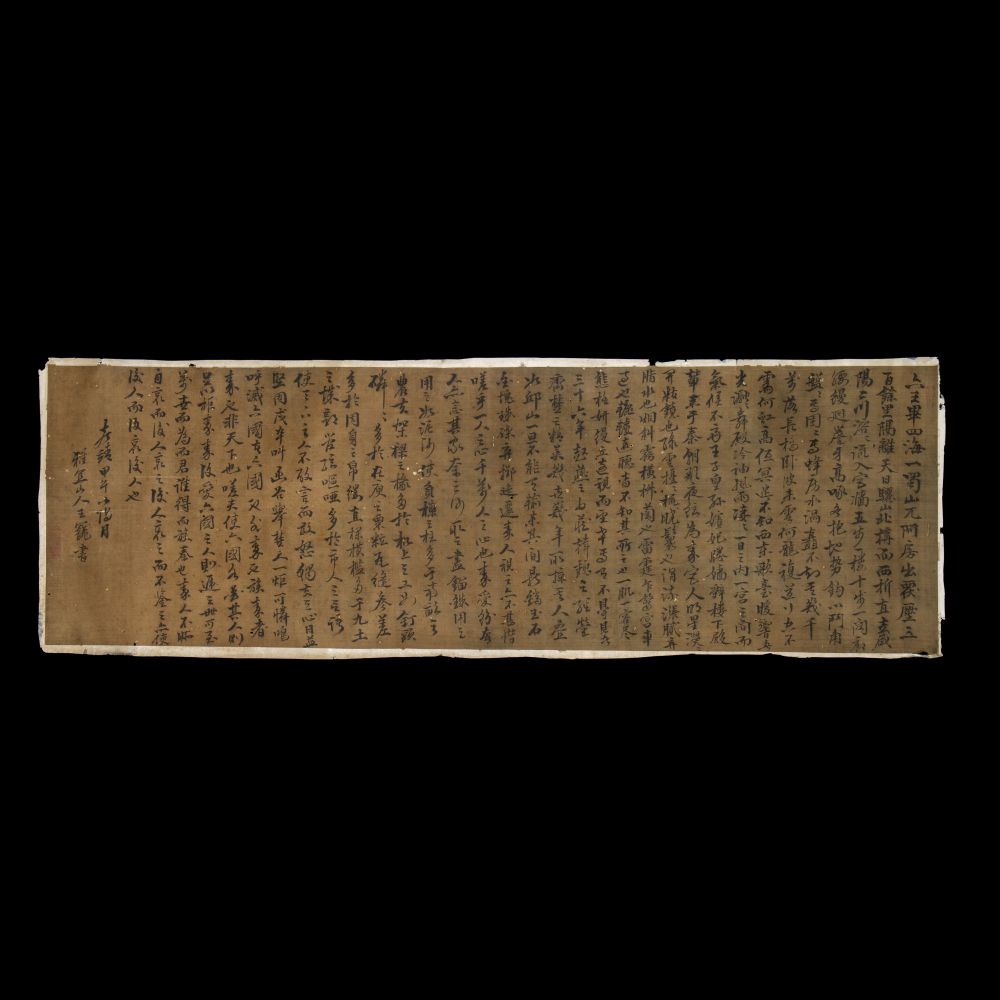 六王畢四海一蜀山兀阿房出覆壓三
百餘里隔離天日驪山北構而西折直走咸
陽二川溶溶流入宮牆五步一樓十步一閣廊
腰縵迴簷牙高啄各抱地勢鉤心鬥角
盤盤焉囷囷焉蜂房水渦矗不知乎幾千
萬落長橋臥波未雲何龍複道行空不
霽何虹高低冥迷不知西東歌臺暖響春
光融融舞殿冷袖風雨凄凄一日之內一宮之間而
氣候不齊王子皇孫嬪妃媵嬙辭樓下殿
輦來于秦朝歌夜絃為秦宮人明星熒熒
開妝鏡也綠雲擾擾梳曉鬟也渭流漲膩弃
脂水也烟斜霧橫焚椒蘭也雷霆乍驚宮車
過也轆轆遠聽杳不知其所之也一肌一容盡
態極妍縵立遠視而望幸焉有不得見者
三十六年燕趙之收藏韓魏之經營
齊楚之精英幾世幾年剽掠其人疊
如邱山一旦不能有輸來其間鼎鐺玉石
金塊珠礫棄擲邐迤秦人視之亦不甚惜
嗟乎一人之心千萬人之心也秦愛紛奢
人亦念其家奈何取之盡錙銖用之
用之如泥沙使負棟之柱多于南畝之
農夫架梁之椽多於機上之工女釘頭
磷磷多於在庾之粟粒瓦縫參差
多於周身之帛縷直欄橫檻多于九土
之城郭管絃嘔啞多於市人之言語
使天下之人不敢言而敢怒獨夫之心日益
驕固戍卒叫函谷舉楚人一炬可憐焦土
嗚呼滅六國者六國也族秦者
秦也非天下也嗟夫使六國各愛其人則
足以拒秦秦復愛六國之人則遞三世可至
萬世而為君誰得而族秦也秦人不暇
自哀而後人哀之後人哀之而不鑒之亦使
後人而復哀後人也
嘉靖甲午小陽月
雅宜山人王寵書